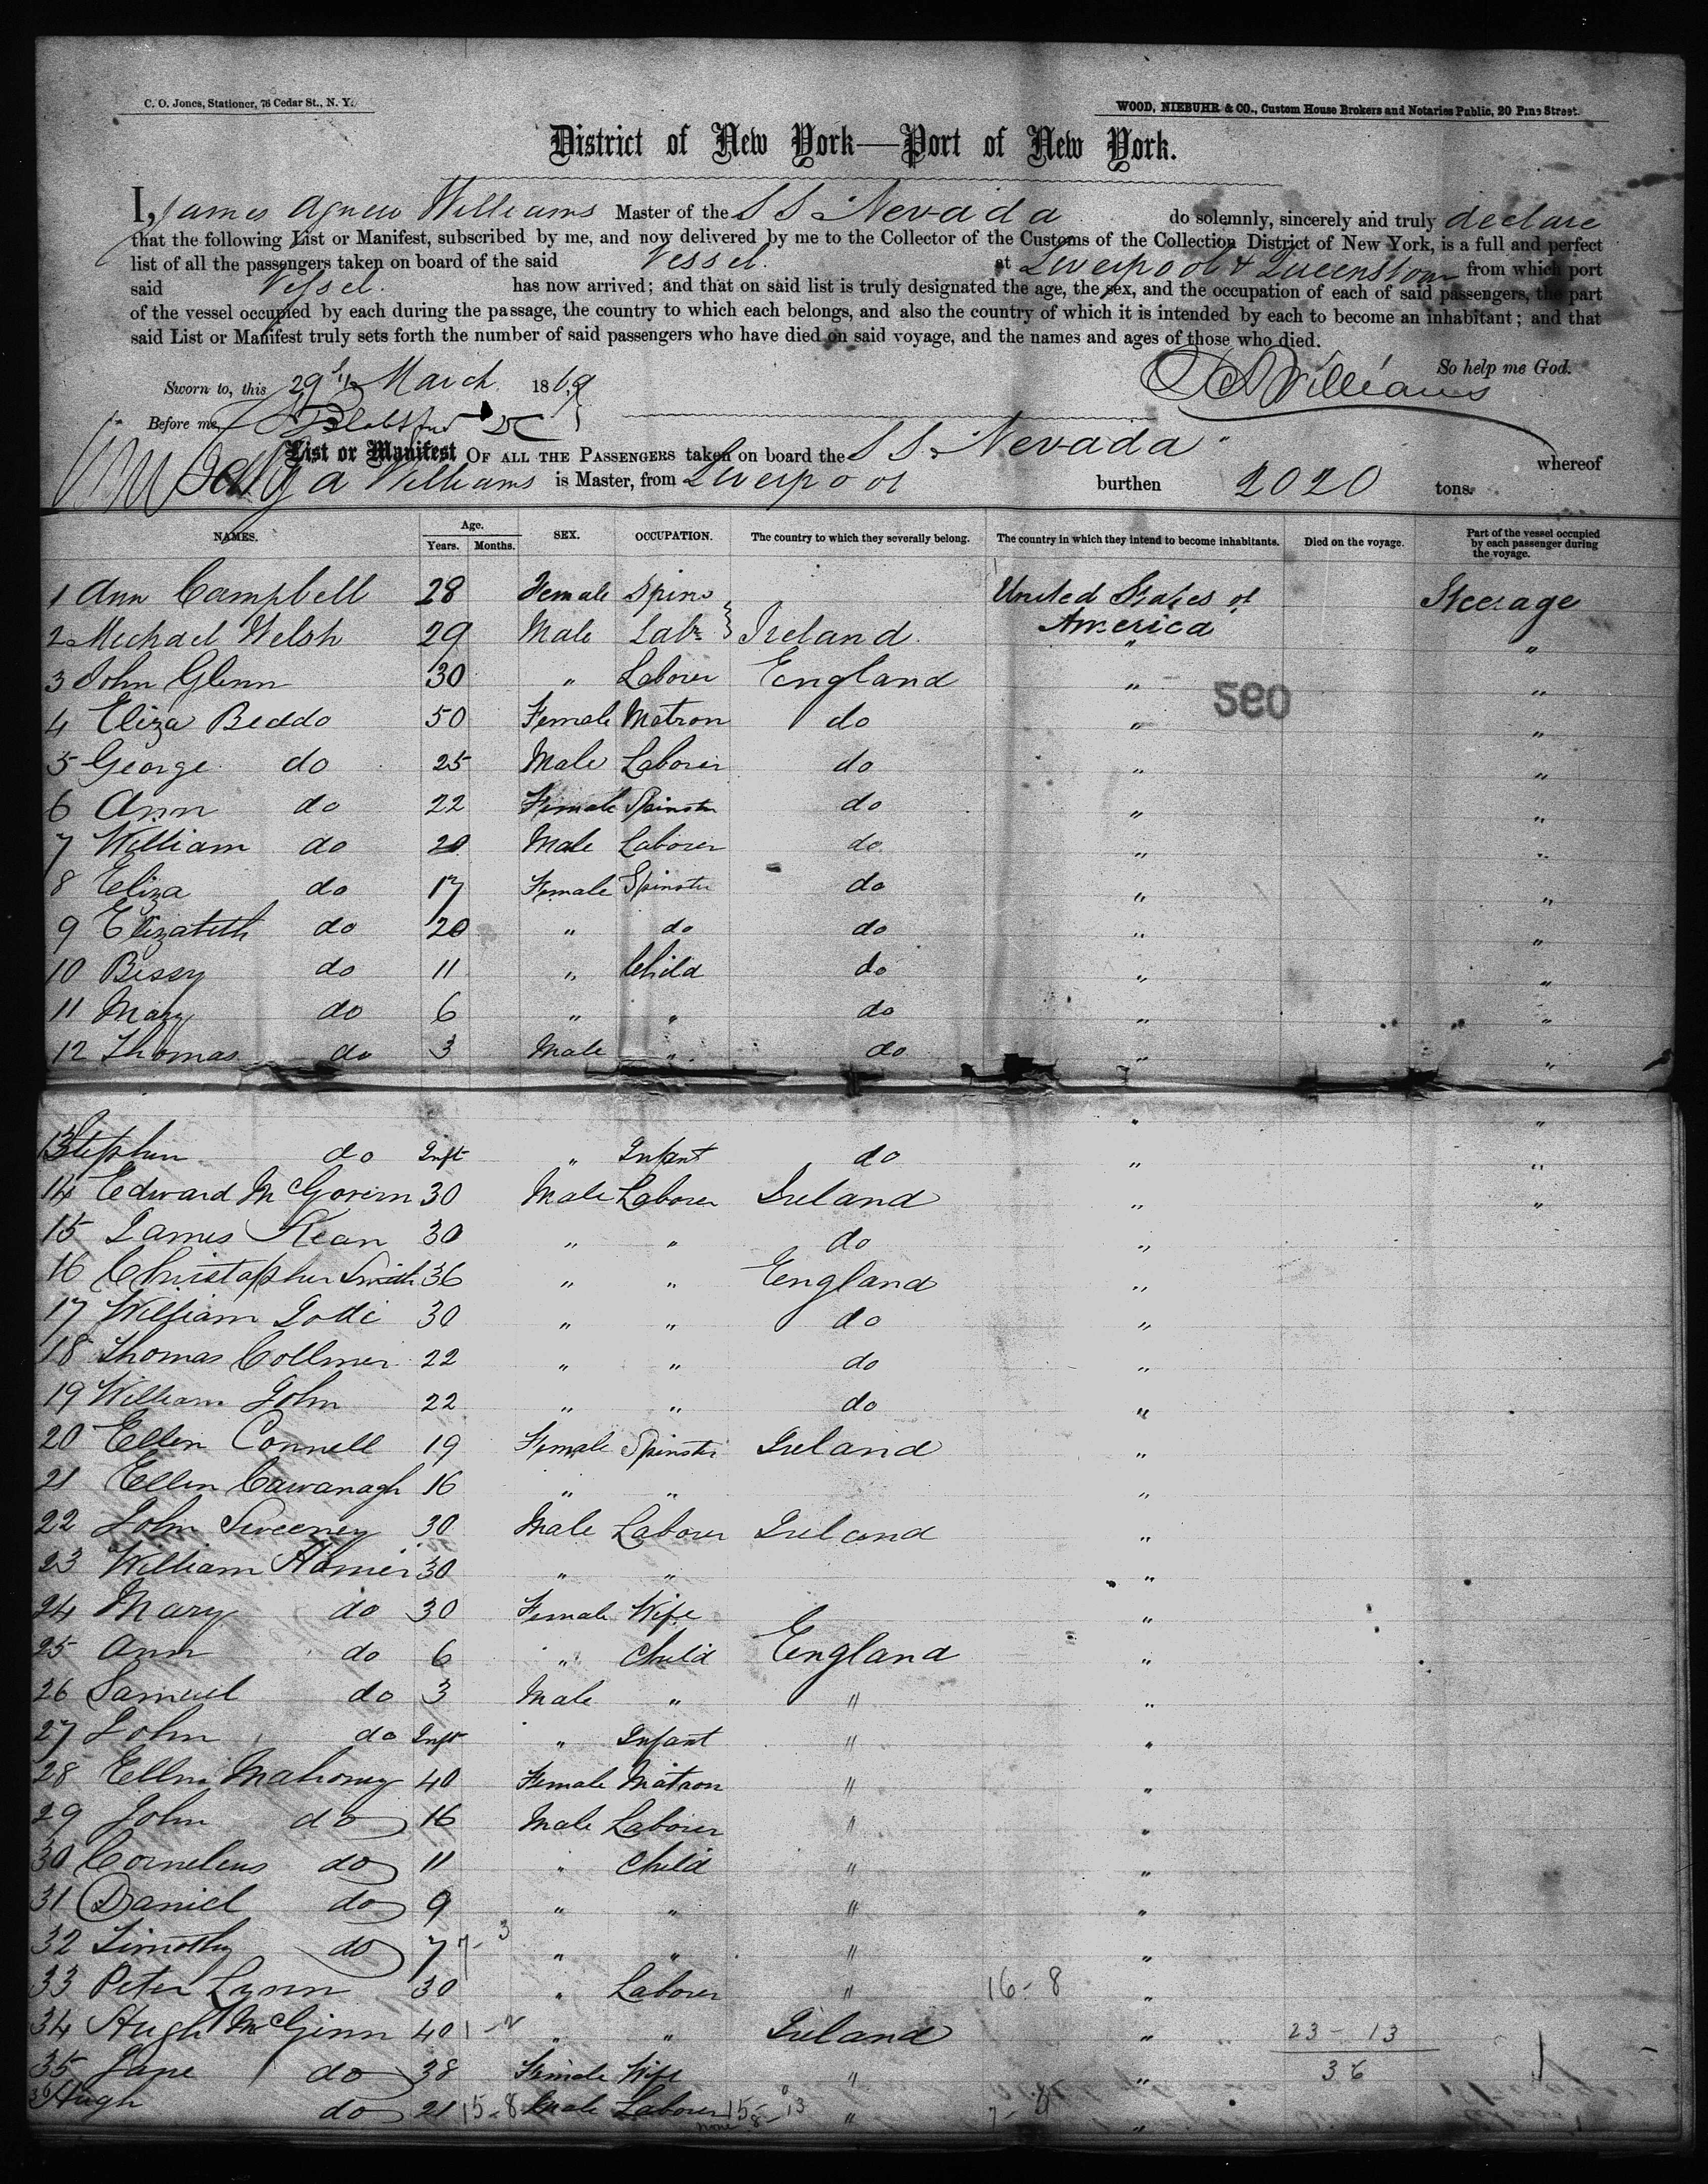 C. O. Jones, Stationer, 76 Cedar St., N. Y.
WOOD, NIEBUHR & CO., Custom House Brokers and Notaries Public, 20 Pine Street.
District of New York—Port of New York.
I, James Agnew Williams Master of the S S Nevada do solemnly, sincerely and truly declare
that the following List or Manifest, subscribed by me, and now delivered by me to the Collector of the Customs of the Collection District of New York, is a full and perfect
list of all the passengers taken on board of the said Vessel. at Liverpool & Queenstown from which port
said Vessel. has now arrived; and that on said list is truly designated the age, the sex, and the occupation of each of said passengers, the part
of the vessel occupied by each during the passage, the country to which each belongs, and also the country of which it is intended by each to become an inhabitant; and that
said List or Manifest truly sets forth the number of said passengers who have died on said voyage, and the names and ages of those who died.
So help me God.
Sworn to, this 29th March 1869
Williams
Before me,
List or Manifest OF ALL THE PASSENGERS taken on board the S S. Nevada whereof
a Williams is Master, from Liverpool burthen 2020 tons.
NAMES. Age. Years. Months. SEX. OCCUPATION. The country to which they severally belong. The country in which they intend to become inhabitants. Died on the voyage. Part of the vessel occupied by each passenger during the voyage.
1 Ann Campbell 28 Female Spins United States of America Steerage
2 Michael Welsh 29 Male Labr Ireland. " "
3 John Glenn 30 " Laborer England " "
SEO
4 Eliza Beddo 50 Female Matron do " "
5 George do 25 Male Laborer do " "
6 Ann do 22 Female Spinster do " "
7 William do 20 Male Laborer do " "
8 Eliza do 17 Female Spinster do " "
9 Elizabeth do 20 " do do " "
10 Bessy do 11 " Child do " "
11 Mary do 6 " " do " "
12 Thomas do 3 Male " do " "
13 Stephen do Inft " Infant do " "
14 Edward McGovern 30 Male Laborer Ireland " "
15 James Kean 30 " " do "
16 Christopher Smith 36 " " England "
17 William Lodi 30 " " do "
18 Thomas Collmer 22 " " do "
19 William John 22 " " do "
20 Ellen Connell 19 Female Spinster Ireland "
21 Ellen Cawanagh 16 " " "
22 John Sweeney 30 Male Laborer Ireland "
23 William Homer 30 " " "
24 Mary do 30 Female Wife "
25 Ann do 6 " Child England "
26 Samuel do 3 Male " " "
27 John do Inft " Infant " "
28 Ellen Mahony 40 Female Matron " "
29 John do 16 Male Laborer " "
30 Cornelius do 11 " Child " "
31 Daniel do 9 " " " "
32 Timothy do 7 7-3 " " " "
33 Peter Lynn 30 " Laborer " 16-8 "
34 Hugh McGinn 40 1-2 " " Ireland " 23-13
35 Jane do 38 Female Wife " " 36
36 Hugh do 21 15-8 Male Laborer 15-8-13 " "